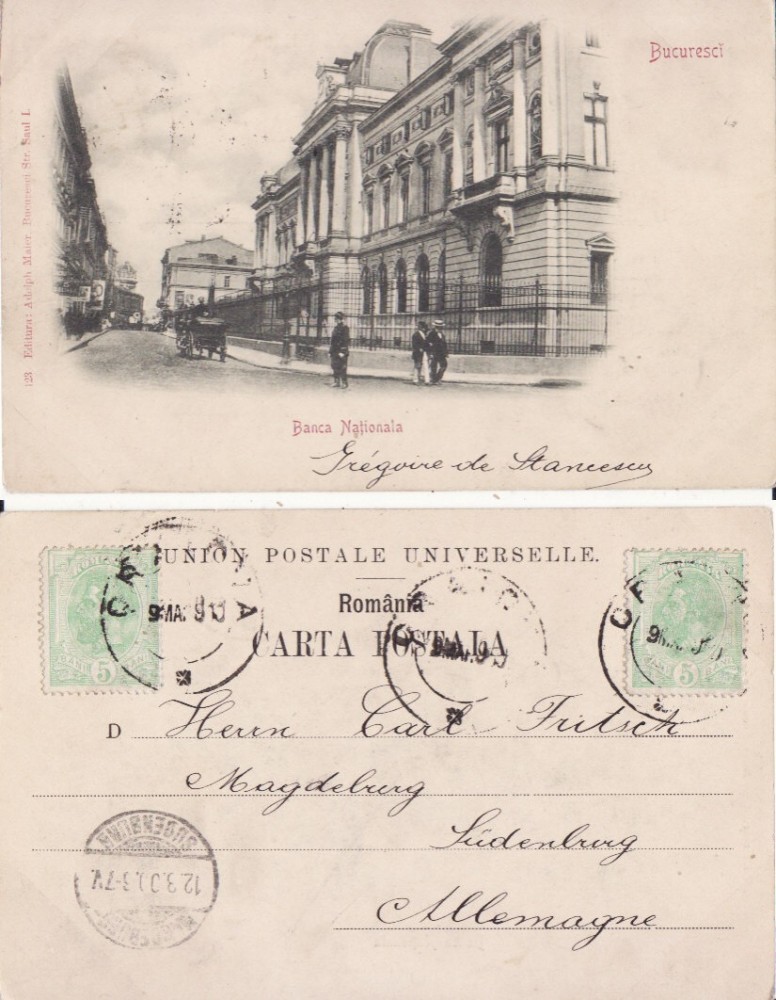 Bucurescĭ
123 Editura: Adolph Maier Bucuresci Str. Saul I.
Banca Naționala
Grégoire de Stancescu
UNION POSTALE UNIVERSELLE.
România
CARTA POSTALA
5
5
D Herrn Carl Fritsch
Magdeburg
Südenburg
Allemagne
12.3.0